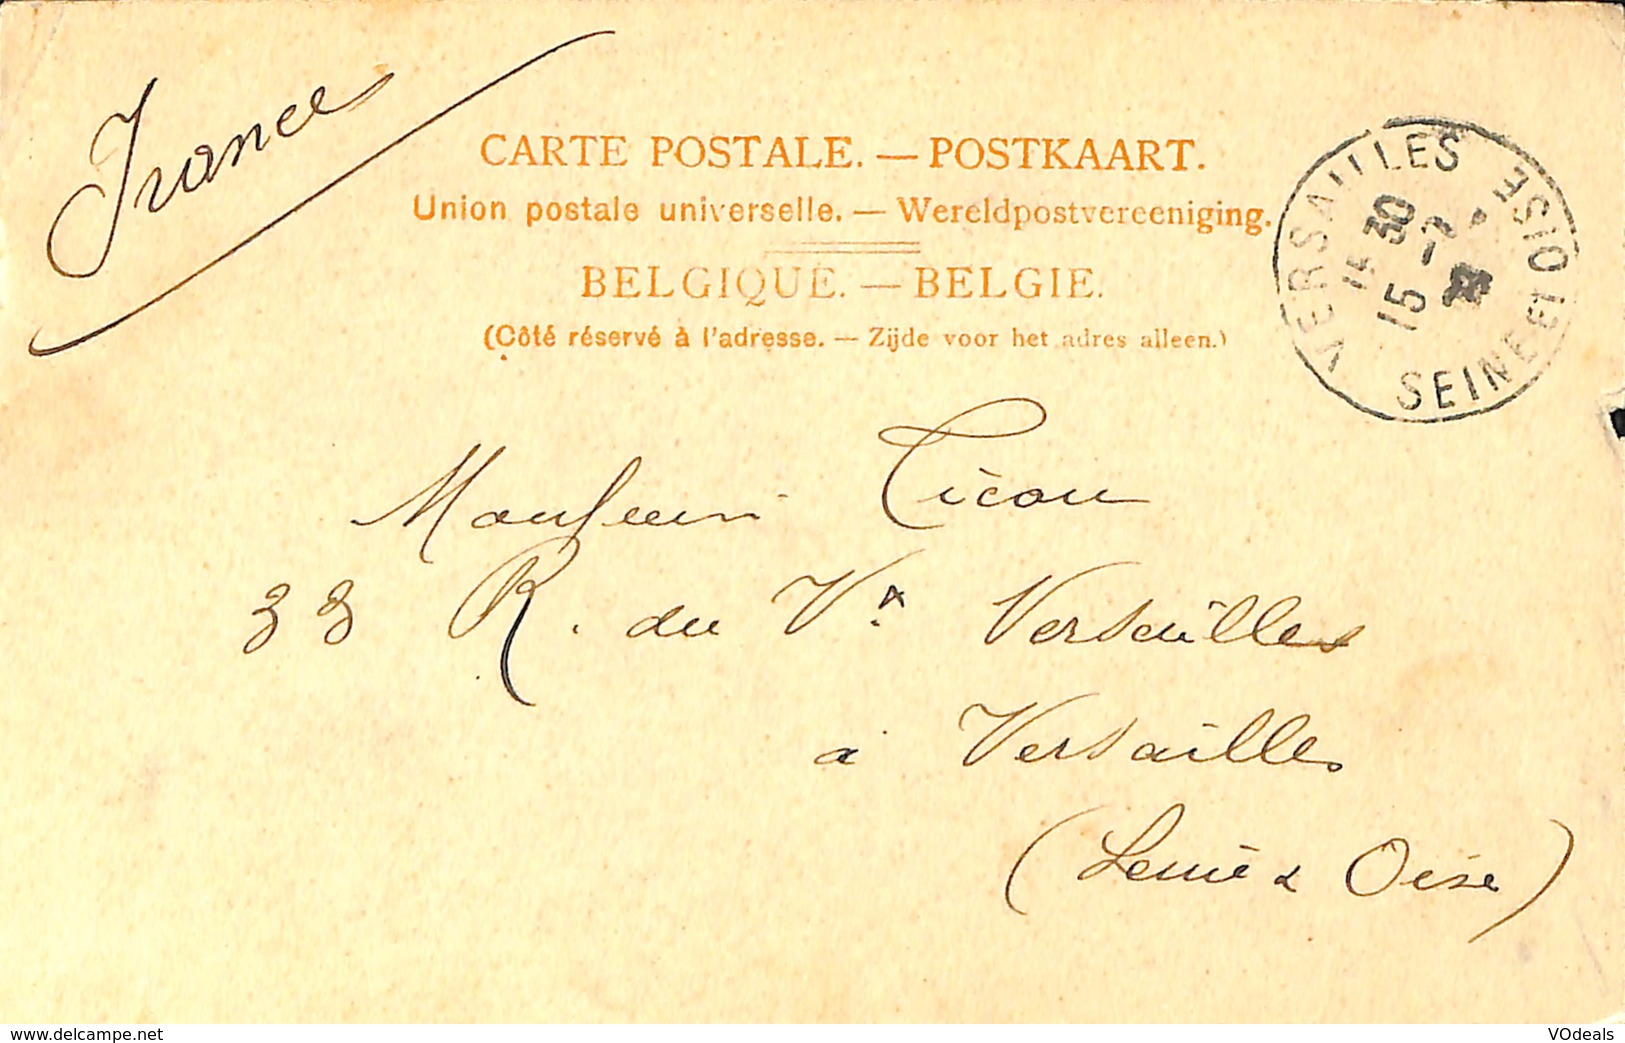 France
CARTE POSTALE. — POSTKAART.
Union postale universelle. — Wereldpostvereeniging.
BELGIQUE. — BELGIE.
(Côté réservé à l'adresse. — Zijde voor het adres alleen.)
VERSAILLES
15 30
15 - 7 -
SEINE ET OISE
Monsieur
33 R. du Vx Versailles
à Versailles
(Seine & Oise)
delcampe.net
VOdeals